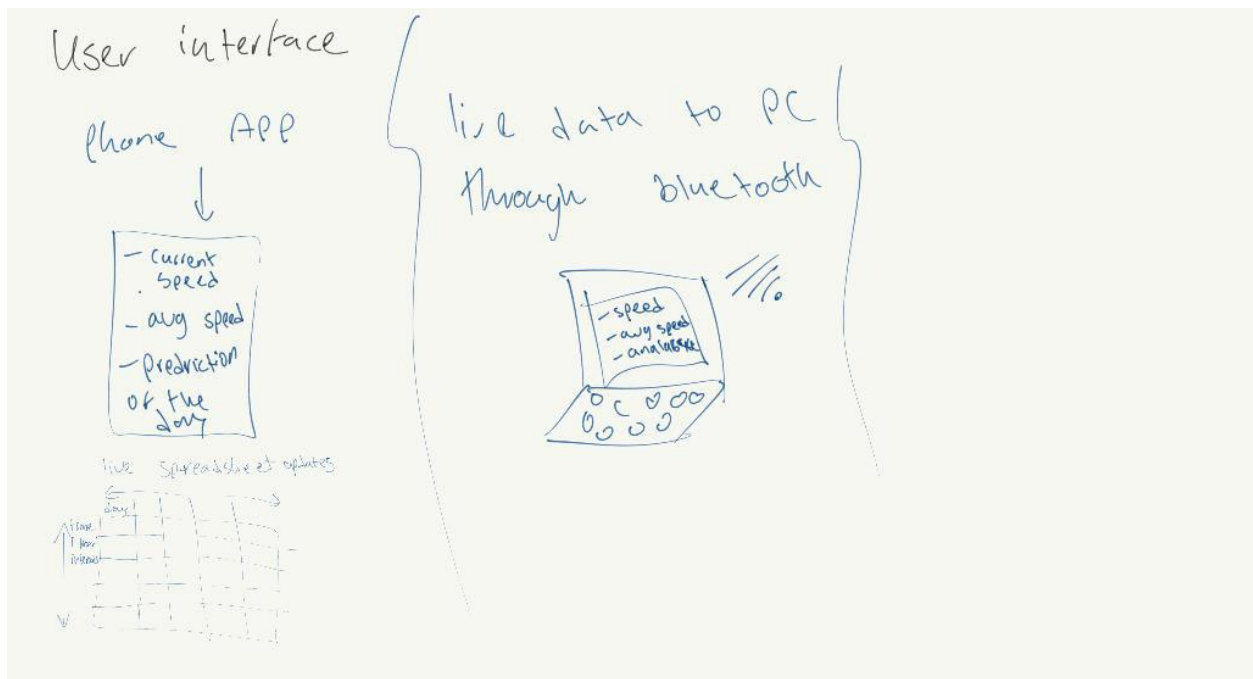 User interface
Phone APP
- current
speed
- avg speed
- predriction
of the
day
live spreadsheet updates
days
time
1 hour
live data to PC
through bluetooth
- speed
- avg speed